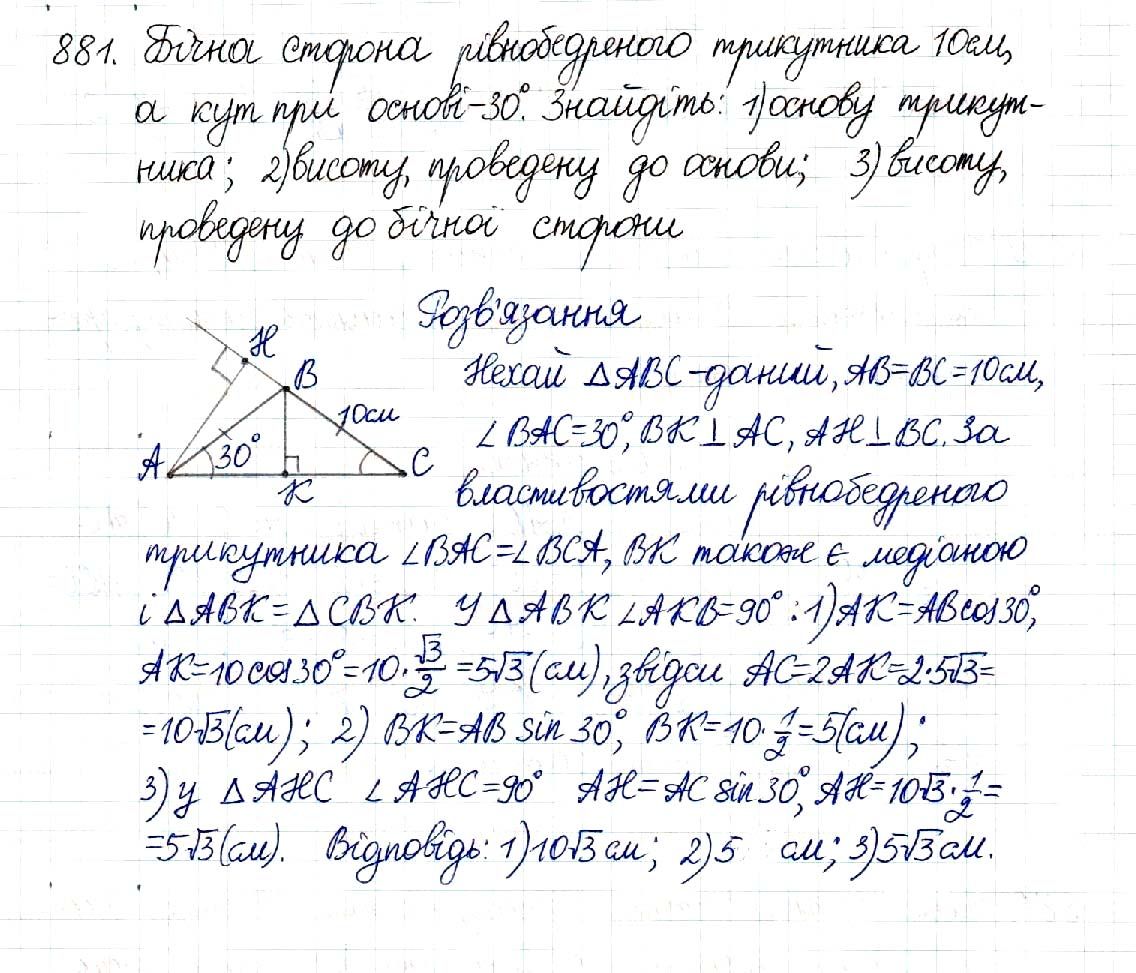 881. Бічна сторона рівнобедреного трикутника 10см,
а кут при основі-30°. Знайдіть: 1)основу трикут-
ника; 2)висоту, проведену до основи; 3)висоту,
проведену до бічної сторони
Розв'язання
H
B
10см
30°
A
K
C
Нехай △ABC-даний, AB=BC=10см,
∠BAC=30°, BK⊥AC, AH⊥BC. За
властивостями рівнобедреного
трикутника ∠BAC=∠BCA, BK також є медіаною
і △ABK=△CBK. У △ABK ∠AKB=90°: 1)AK=ABcos30°,
AK=10cos30°=10·√3/2=5√3(см), звідси AC=2AK=2·5√3=
=10√3(см); 2) BK=AB sin 30°, BK=10·1/2=5(см);
3)у △AHC ∠AHC=90° AH=AC sin30°, AH=10√3·1/2=
=5√3(см). Відповідь: 1)10√3см; 2)5 см; 3)5√3см.